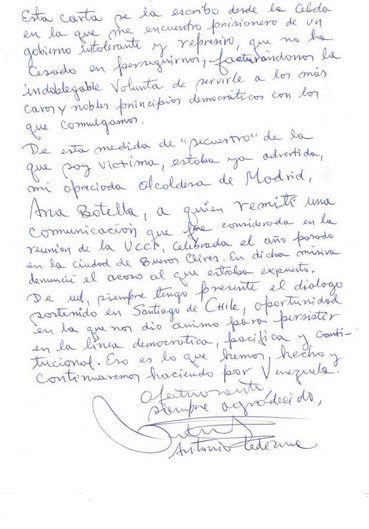 Esta carta se la escribo desde la Celda
en la que me encuentro prisionero de un
gobierno intolerante y represivo, que no ha
Cesado en perseguirnos, facturándonos la
indoblegable Volunta de servirle a los más
caros y nobles principios democráticos con los
que comulgamos.
De esta medida de "secuestro" de la
que soy victima, estaba ya advertida,
mi apreciada alcaldesa de Madrid,
Ana Botella, a quien remití una
comunicación que fue considerada en la
reunion de la UCCI, celebrada el año pasado
en la ciudad de Buenos Aires. En dicha misiva
denuncié el acoso al que estaba expuesto.
De ud, siempre tengo presente el dialogo
sostenido en Santiago de Chile, oportunidad
en la que nos dio animo para persistir
en la línea democrática, pacífica y consti-
tucional. Eso es lo que hemos, hecho y
continuaremos haciendo por Venezuela.
Afectuosamente
siempre agradecido,
Antonio Ledezma